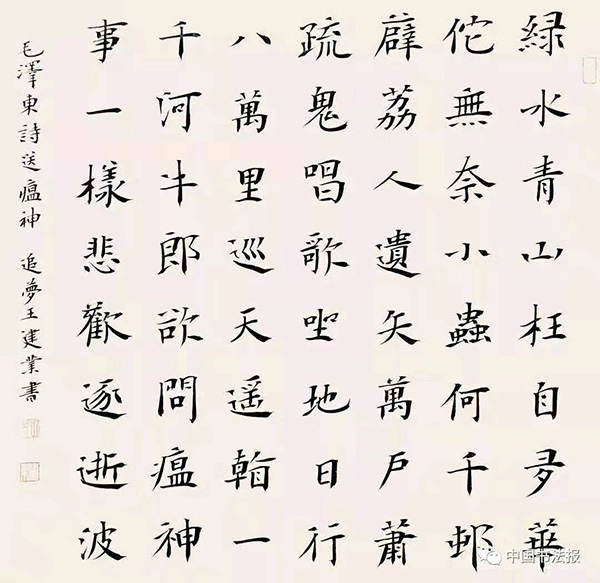 緑水青山枉自多華
佗無奈小蟲何千邨
薜荔人遺矢萬戶蕭
疏鬼唱歌坐地日行
八萬里巡天遥看一
千河牛郎欲問瘟神
事一樣悲歡逐逝波
毛澤東詩送瘟神 追夢王建業書
中国书法报